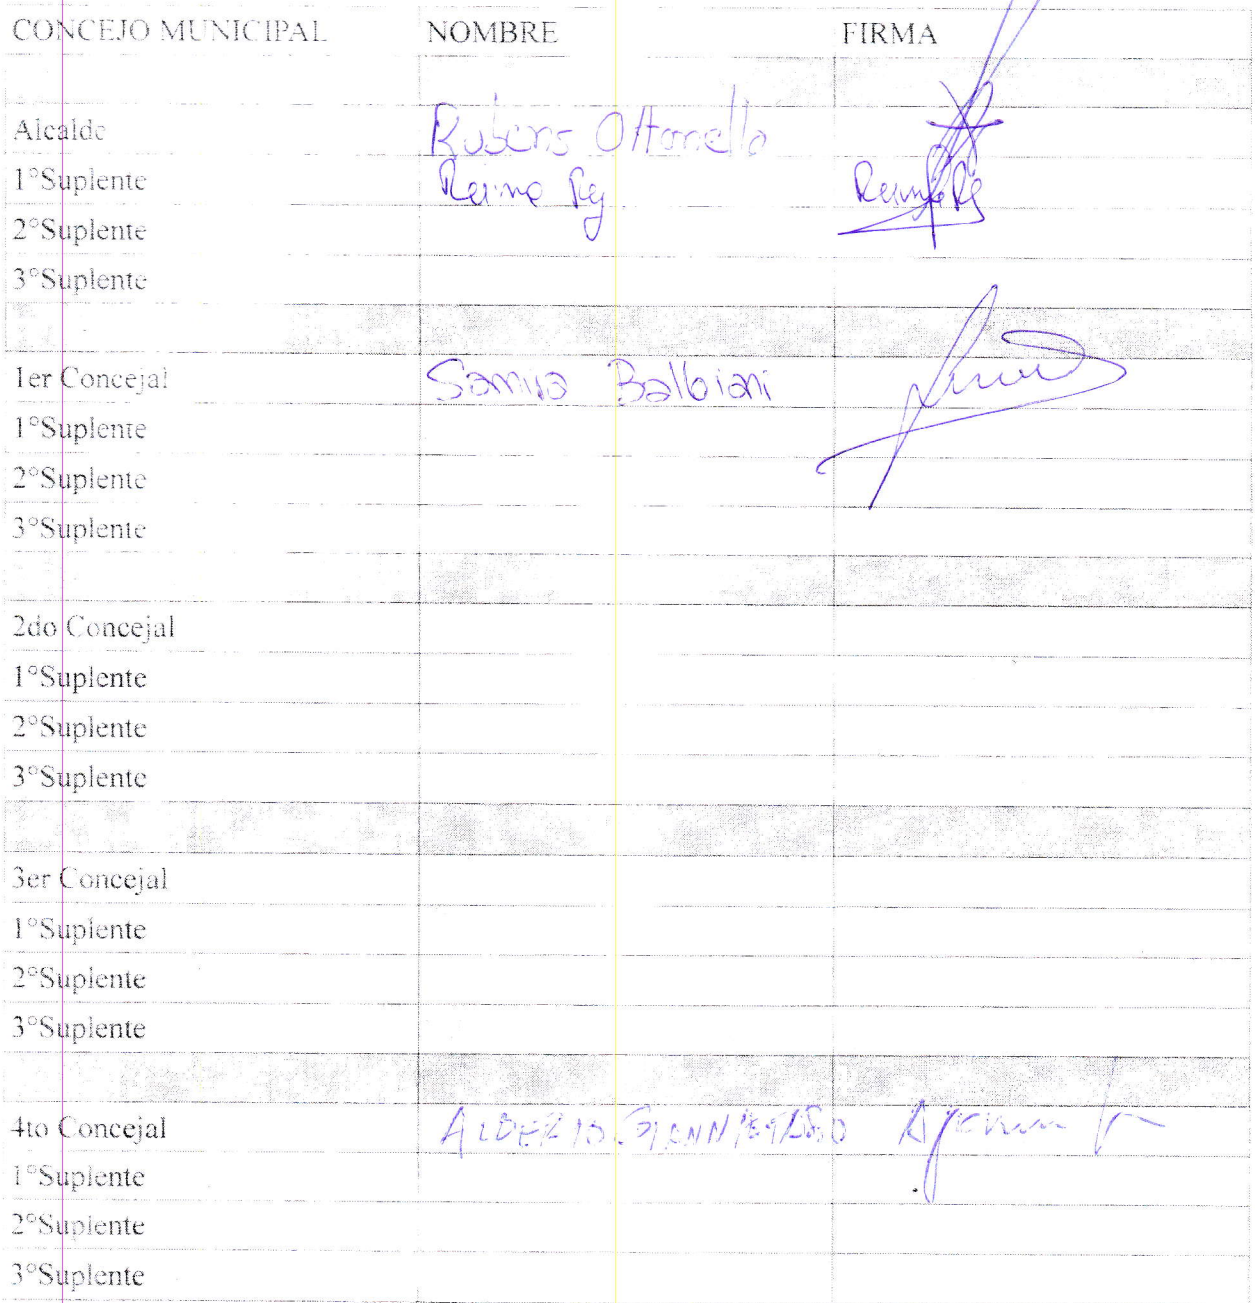 CONCEJO MUNICIPAL NOMBRE FIRMA
Alcalde Rubens Ottonello
1°Suplente
2°Suplente
3°Suplente
1er Concejal Samira Balbiani
1°Suplente
2°Suplente
3°Suplente
2do Concejal
1°Suplente
2°Suplente
3°Suplente
3er Concejal
1°Suplente
2°Suplente
3°Suplente
4to Concejal ALBERTO
1°Suplente
2°Suplente
3°Suplente